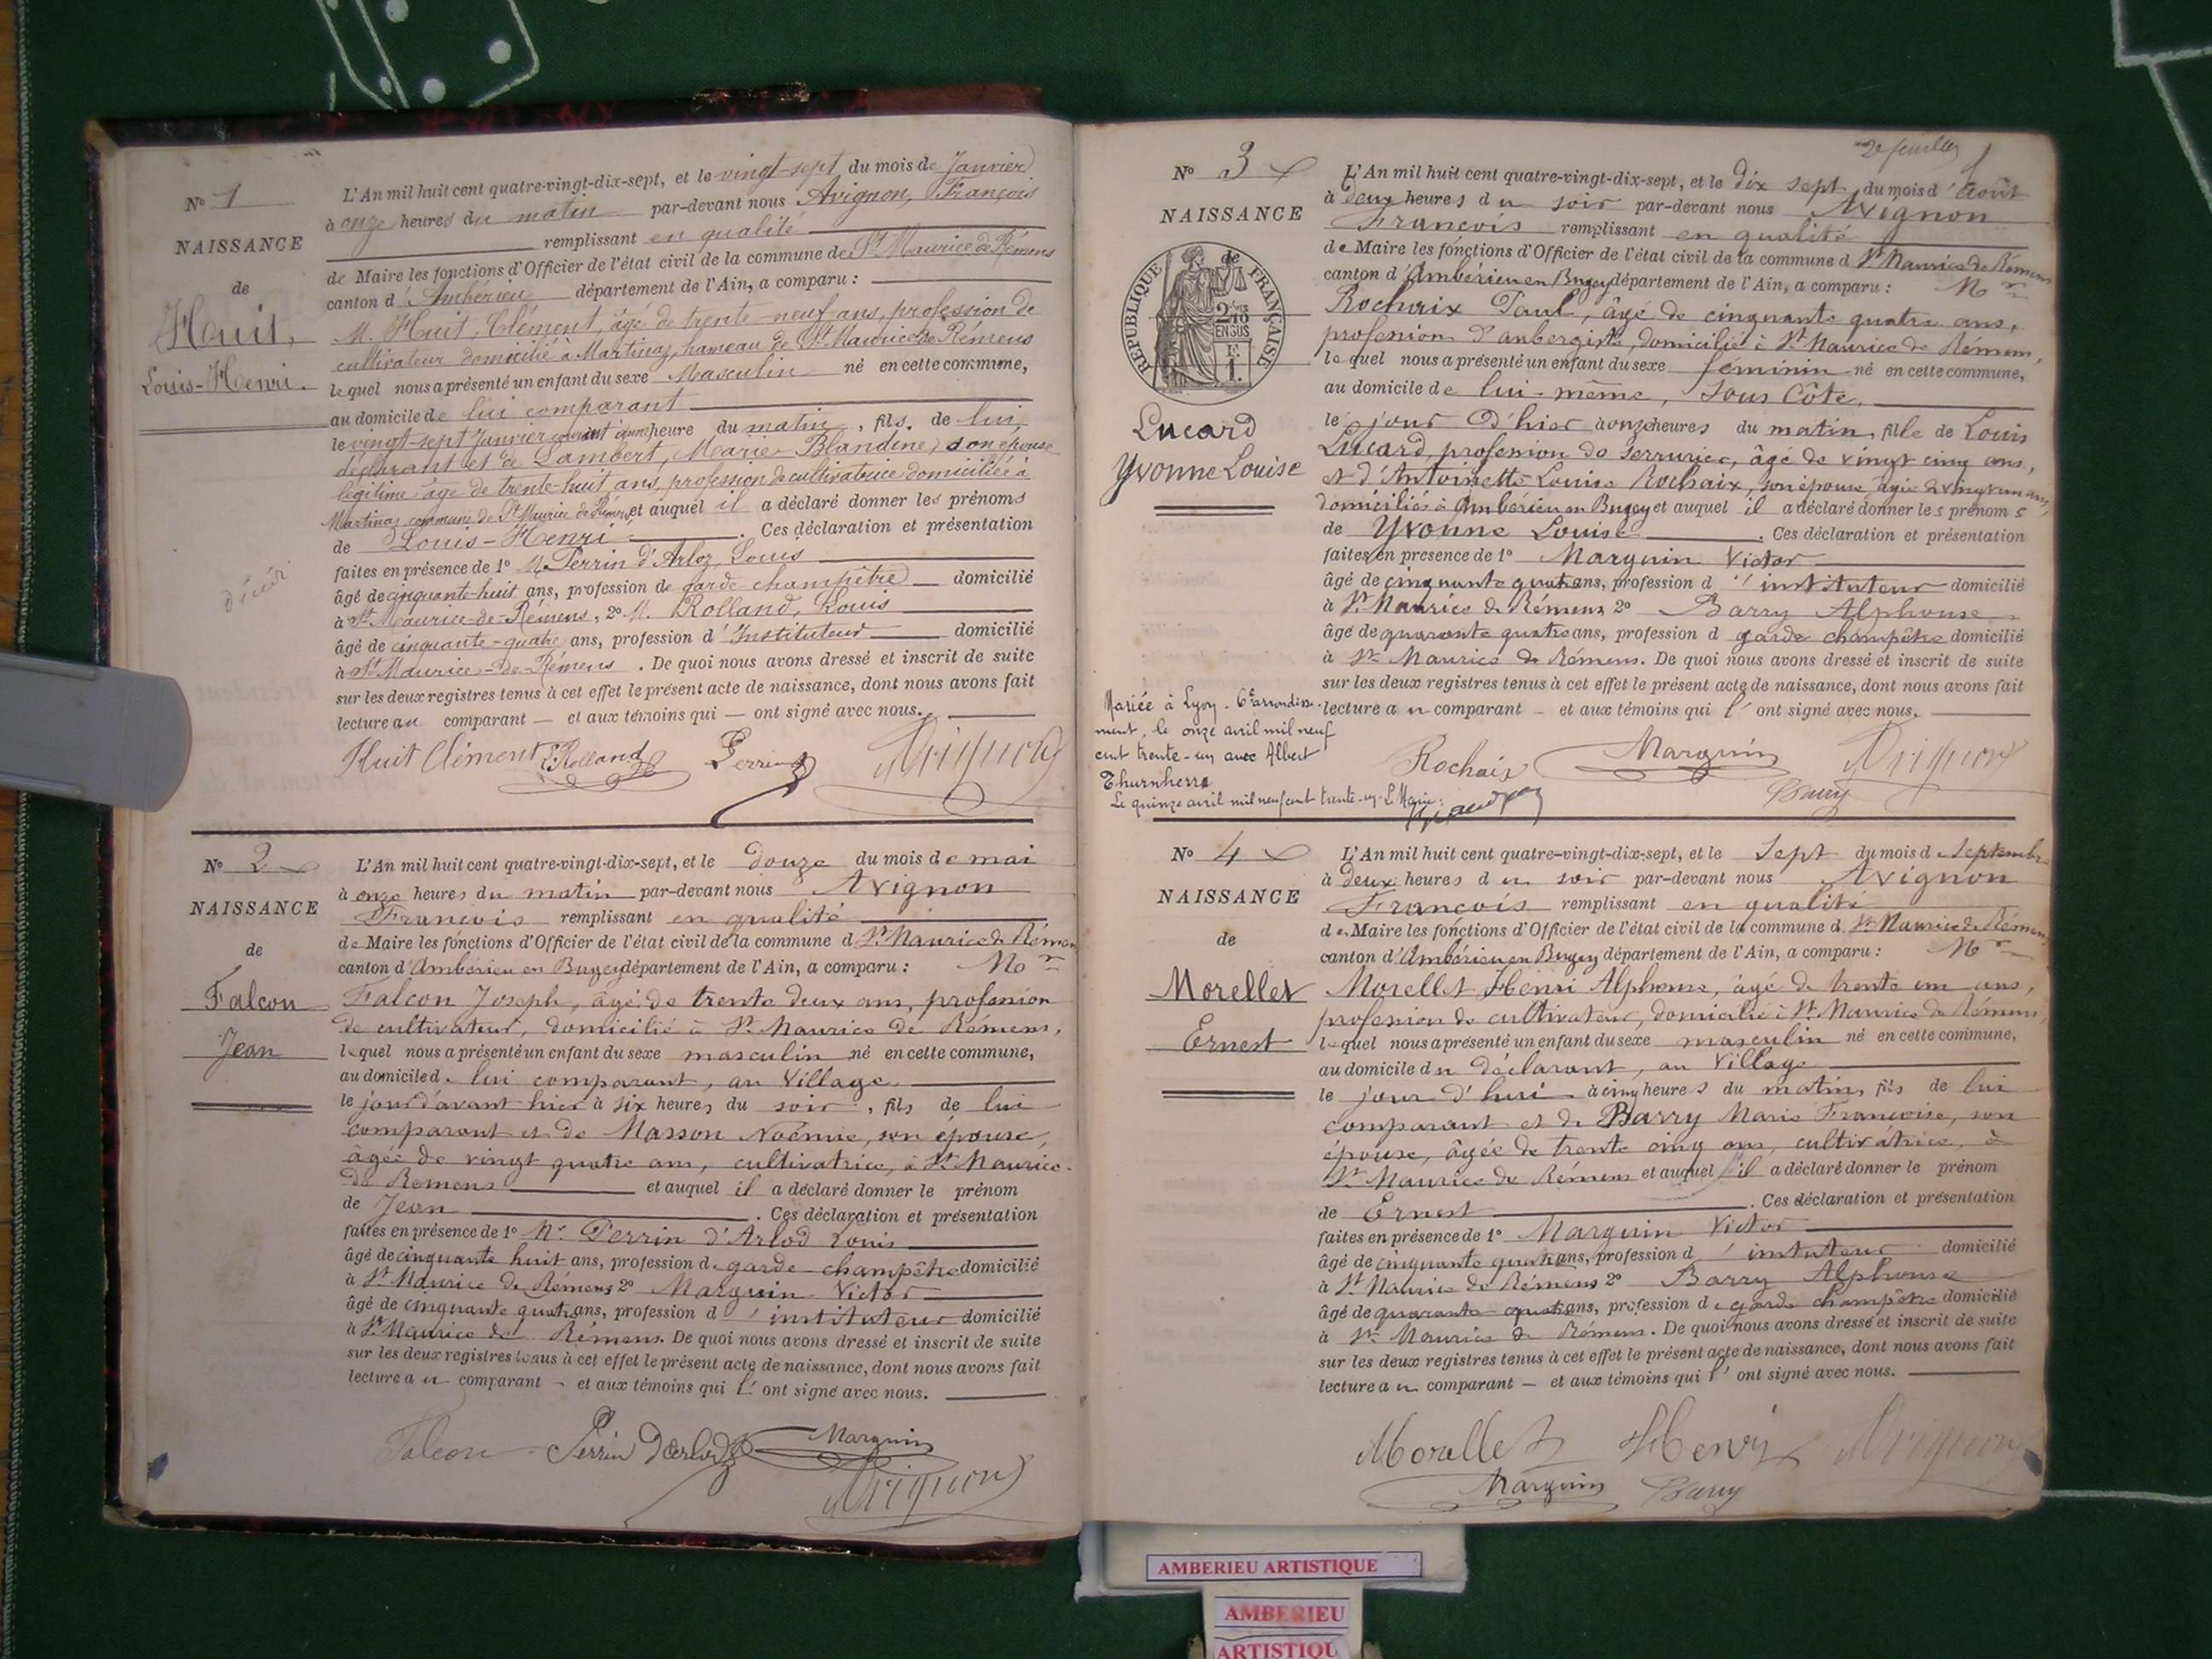 N° 1
NAISSANCE
de
Huit,
Louis-Henri.
décédé
L'An mil huit cent quatre-vingt-dix-sept, et le vingt-sept du mois de Janvier
à onze heures du matin par-devant nous Avignon, François
remplissant en qualité
de Maire les fonctions d'Officier de l'état civil de la commune de St Maurice de Rémens
canton d'Ambérieu département de l'Ain, a comparu :
M. Huit, Clément, âgé de trente-neuf ans, profession de
cultivateur domicilié à Martinaz, hameau de St Maurice de Rémens
lequel nous a présenté un enfant du sexe Masculin né en cette commune,
au domicile de lui comparant
le vingt-sept Janvier courant à une heure du matin, fils de lui,
déclarant et de Lambert, Marie Blandine, son épouse
légitime âgé de trente-huit ans, profession de cultivatrice domiciliée à
Martinaz commune de St Maurice de Rémens et auquel il a déclaré donner les prénoms
de Louis-Henri. Ces déclaration et présentation
faites en présence de 1° M. Perrin d'Arloz, Louis
âgé de cinquante-huit ans, profession de garde champêtre domicilié
à St Maurice-de-Rémens, 2° M. Rolland, Louis
âgé de cinquante-quatre ans, profession d'Instituteur domicilié
à St Maurice-de-Rémens. De quoi nous avons dressé et inscrit de suite
sur les deux registres tenus à cet effet le présent acte de naissance, dont nous avons fait
lecture au comparant — et aux témoins qui — ont signé avec nous.
Huit Clément Rolland Perrin Avignon
N° 2
NAISSANCE
de
Falcon
Jean
L'An mil huit cent quatre-vingt-dix-sept, et le douze du mois de mai
à onze heures du matin par-devant nous Avignon
François remplissant en qualité
de Maire les fonctions d'Officier de l'état civil de la commune d St Maurice de Rémens
canton d'Ambérieu en Bugey département de l'Ain, a comparu : Mr
Falcon Joseph, âgé de trente deux ans, profession
de cultivateur, domicilié à St Maurice de Rémens,
lequel nous a présenté un enfant du sexe masculin né en cette commune,
au domicile de lui comparant, au Village,
le jour d'avant hier à six heures du soir, fils de lui
comparant et de Masson Noémie, son épouse,
âgée de vingt quatre ans, cultivatrice, à St Maurice
de Remens et auquel il a déclaré donner le prénom
de Jean. Ces déclaration et présentation
faites en présence de 1° Mr Perrin d'Arlod Louis
âgé de cinquante huit ans, profession de garde champêtre domicilié
à St Maurice de Rémens 2° Marguin Victor
âgé de cinquante quatre ans, profession d'instituteur domicilié
à St Maurice de Rémens. De quoi nous avons dressé et inscrit de suite
sur les deux registres tenus à cet effet le présent acte de naissance, dont nous avons fait
lecture au comparant — et aux témoins qui l' ont signé avec nous.
Falcon Perrin Darlod Marguin
Avignon
2e feuillet
N° 3
NAISSANCE
de
RÉPUBLIQUE FRANÇAISE
2/10 EN SUS
Lucard
Yvonne Louise
L'An mil huit cent quatre-vingt-dix-sept, et le dix sept du mois d'Août
à deux heures du soir par-devant nous Avignon
François remplissant en qualité
de Maire les fonctions d'Officier de l'état civil de la commune d St Maurice de Rémens
canton d'Ambérieu en Bugey département de l'Ain, a comparu : Mr
Rochaix Paul, âgé de cinquante quatre ans,
profession d'aubergiste, domicilié à St Maurice de Rémens,
lequel nous a présenté un enfant du sexe féminin né en cette commune,
au domicile de lui-même, Sous Côte,
le jour d'hier à onze heures du matin, fille de Louis
Lucard, profession de serrurier, âgé de vingt cinq ans,
et d'Antoinette Louise Rochaix, son épouse, âgée de vingt un ans,
domiciliés à Ambérieu en Bugey et auquel il a déclaré donner les prénoms
de Yvonne Louise. Ces déclaration et présentation
faites en présence de 1° Marguin Victor
âgé de cinquante quatre ans, profession d'instituteur domicilié
à St Maurice de Rémens 2° Barry Alphonse
âgé de quarante quatre ans, profession d garde champêtre domicilié
à St Maurice de Rémens. De quoi nous avons dressé et inscrit de suite
sur les deux registres tenus à cet effet le présent acte de naissance, dont nous avons fait
lecture au comparant — et aux témoins qui l' ont signé avec nous.
Mariée à Lyon - 6e arrondisse-
ment, le onze avril mil neuf
cent trente-un avec Albert
Thurnherr
Le quinze avril mil neuf cent trente-un. Le Maire :
Rochaix Marguin Avignon
Barry
N° 4
NAISSANCE
de
Morellet
Ernest
L'An mil huit cent quatre-vingt-dix-sept, et le Sept du mois d Septembre
à deux heures du soir par-devant nous Avignon
François remplissant en qualité
de Maire les fonctions d'Officier de l'état civil de la commune d St Maurice de Rémens
canton d'Ambérieu en Bugey département de l'Ain, a comparu : Mr
Morellet Henri Alphonse, âgé de trente un ans,
profession de cultivateur, domicilié à St Maurice de Rémens,
lequel nous a présenté un enfant du sexe masculin né en cette commune,
au domicile du déclarant, au Village
le jour d'hui à cinq heures du matin, fils de lui
comparant et de Barry Marie Françoise, son
épouse, âgée de trente cinq ans, cultivatrice, à
St Maurice de Rémens et auquel il a déclaré donner le prénom
de Ernest. Ces déclaration et présentation
faites en présence de 1° Marguin Victor
âgé de cinquante quatre ans, profession d'instituteur domicilié
à St Maurice de Rémens 2° Barry Alphonse
âgé de quarante quatre ans, profession de garde champêtre domicilié
à St Maurice de Rémens. De quoi nous avons dressé et inscrit de suite
sur les deux registres tenus à cet effet le présent acte de naissance, dont nous avons fait
lecture au comparant — et aux témoins qui l' ont signé avec nous.
Morellet Henri Avignon
Marguin Barry
AMBERIEU ARTISTIQUE
AMBERIEU
ARTISTIQU